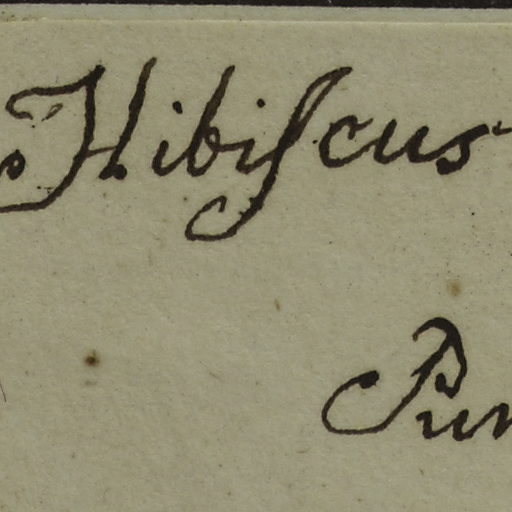 Hibiſcus
Pun